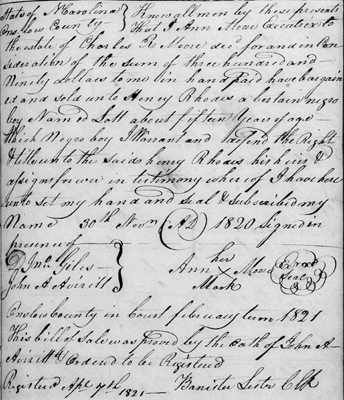 State of N Carolina } Know all men by these presents
Onslow County } That I Ann Moore Executrix to
the estate of Charles R Moore decd for and in Con
sideration of the sum of three hundred and
Ninety dollars to me in hand paid have bargain
ed and sold unto Henry Rhodes a certain negro
boy Named Lott about fifteen Years of age
which Negro boy I Warrant and defend the Right
& title unto the said henry Rhodes his heirs &
assigns forever in testimony whereof I have here
unto set my hand and seal & subscribed my
Name 30th Novr AD 1820 signed in
presence of
Jno. Giles } her
John A Averitt } Ann X Moore Seal
Mark
Onslow County in Court february term 1821
This bill of sale was proved by the Oath of John A
Averitt & Ordered to be Registered
Registered Apl 7th 1821 — Banister Lester Clk